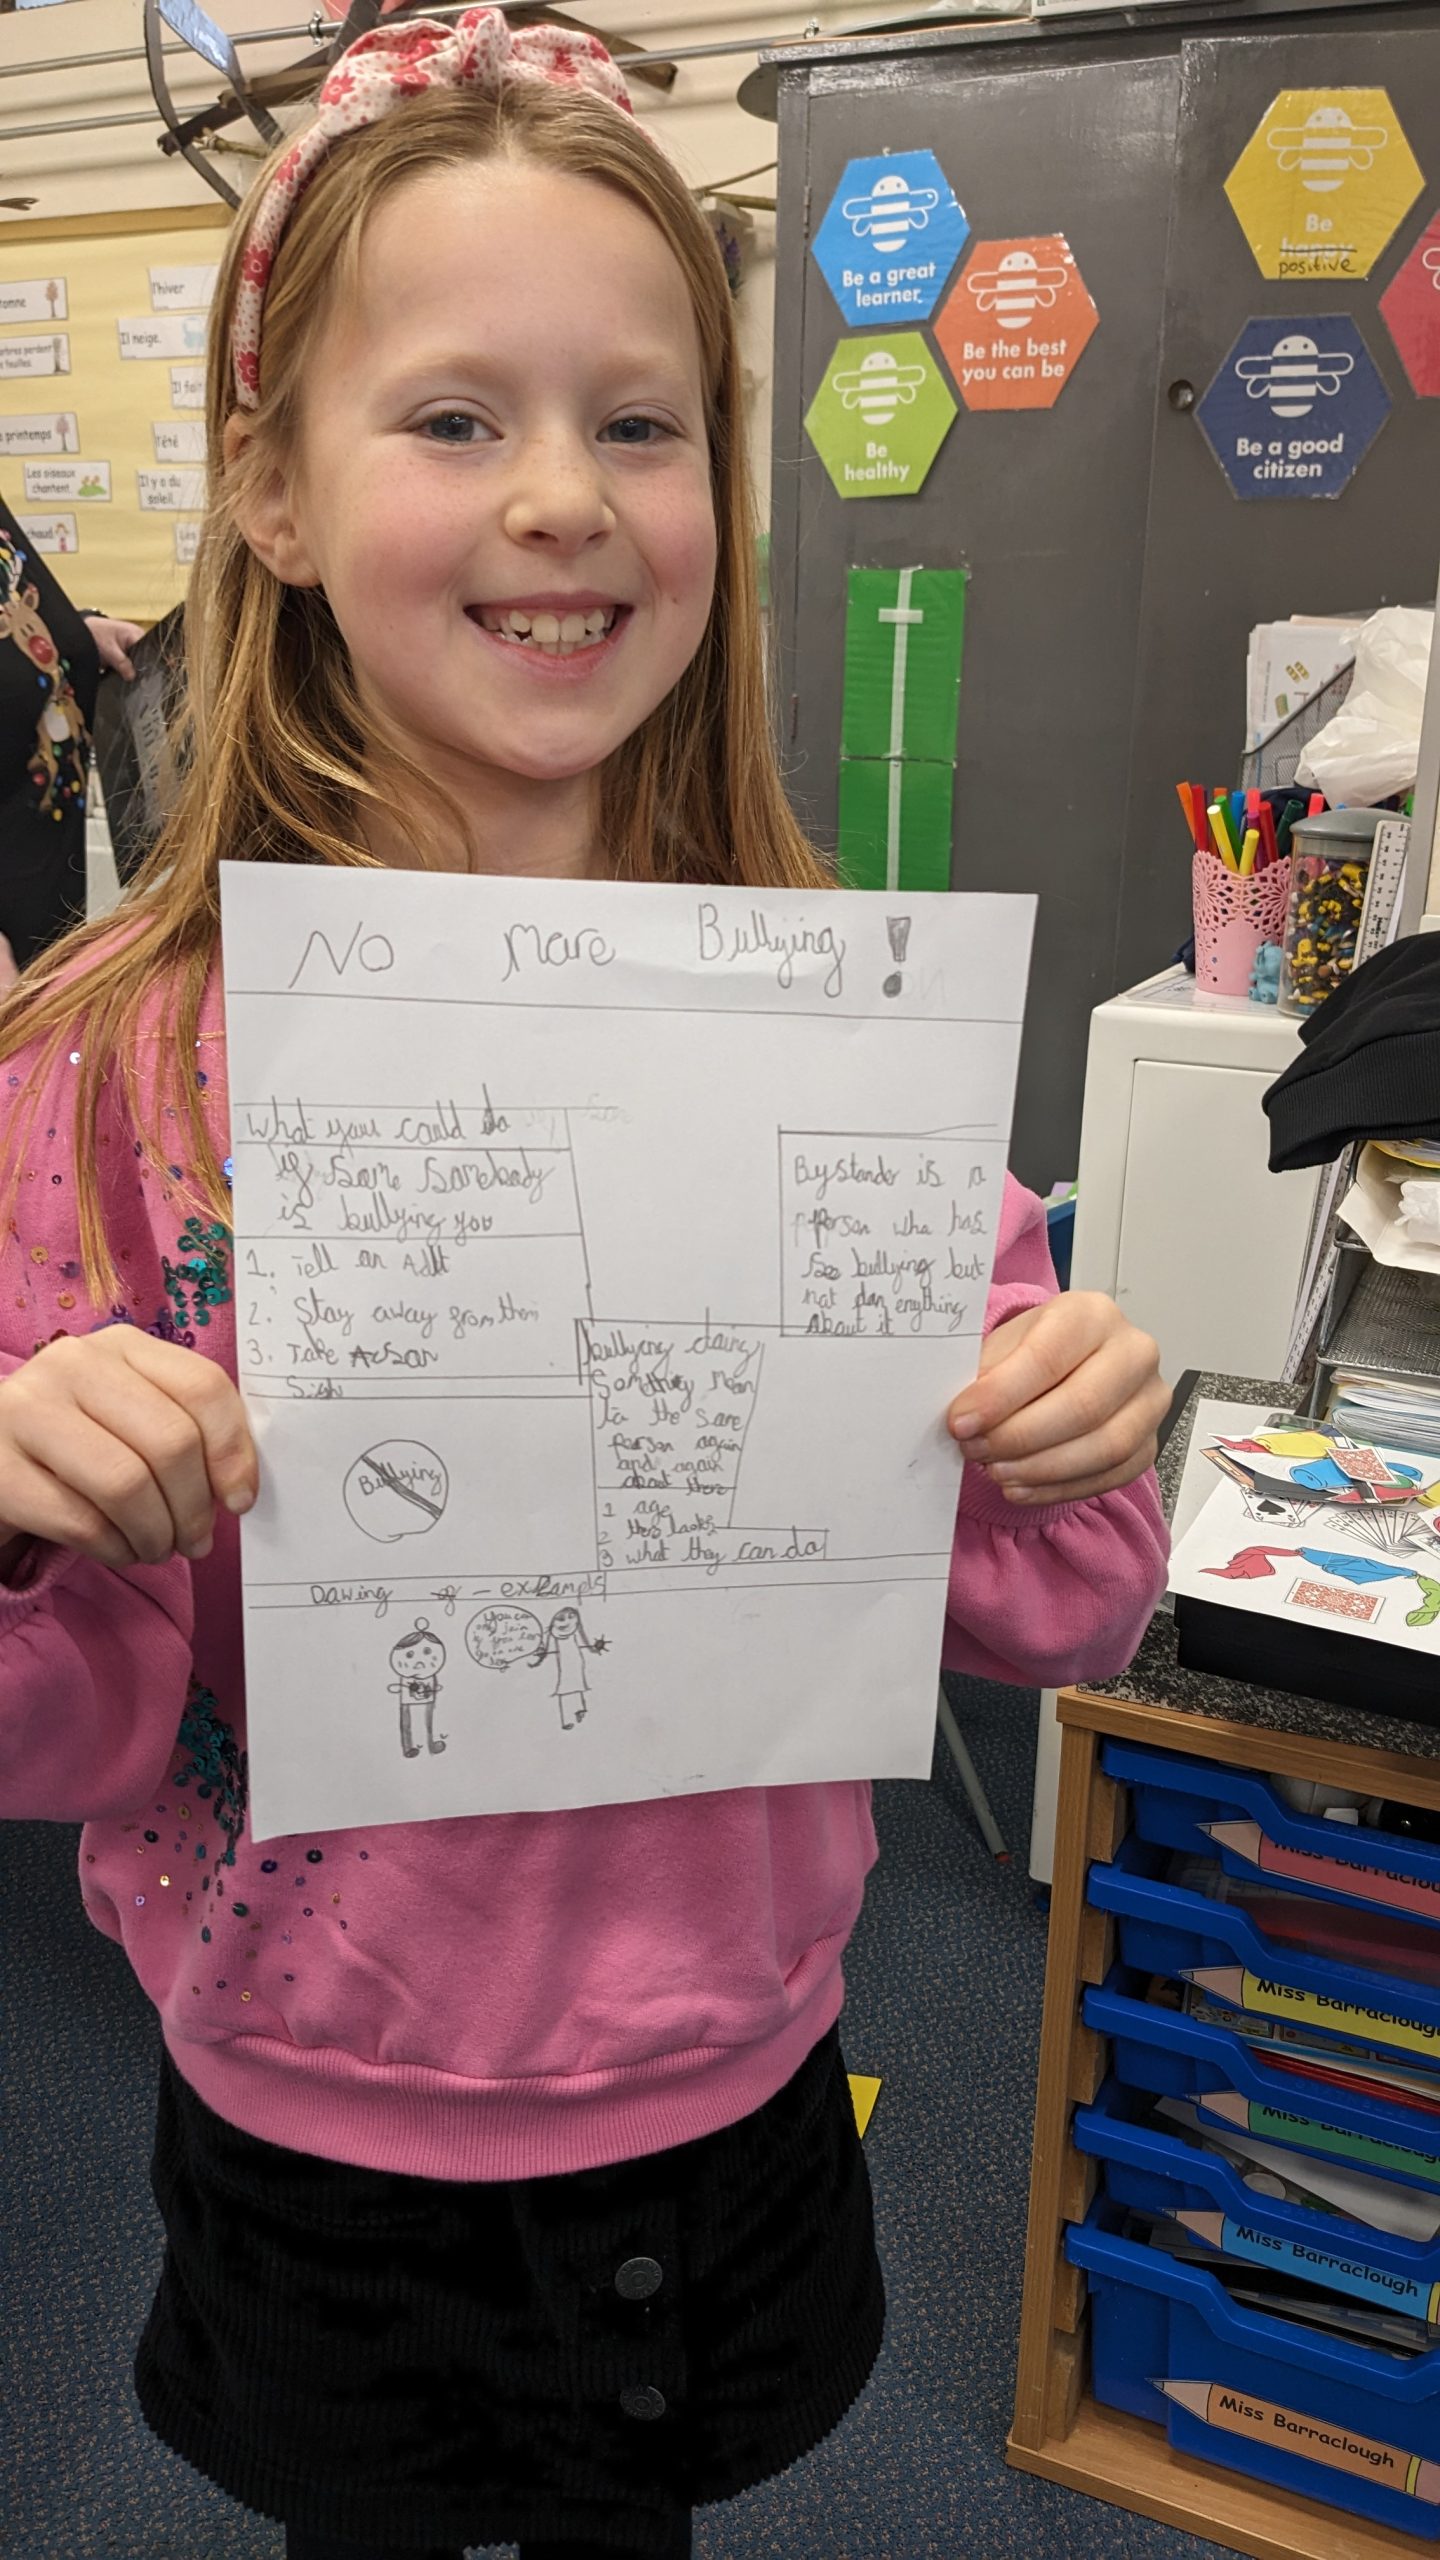 l'hiver
Il neige.
l'été
Il y a du
soleil.
printemps
Les oiseaux
chantent.
chaud
Be a great
learner
Be the best
you can be
Be
healthy
Be
happy
positive
Be a good
citizen
No more Bullying!
what you could do
if some somebody
is bullying you
1. Tell an Adlt
2. Stay away from them
3. Take Acison
Sigh
Bullying
Bystander is a
person who has
see bullying but
not don enything
about it
bullying doing
Something mean
to the same
person again
and again
about there
1 age
2 there looks
3 what they can do
Dawing of - exlampls
you can
only join
if you
Miss Barraclou
Miss Barraclough
Miss Barraclough
Miss Barraclough
Miss Barraclough